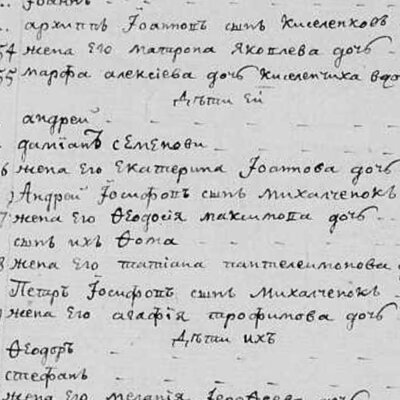 архиппъ Іоанновъ сынъ Киселенковъ
54 жена Его матрона Яковлева дочь
55 марѳа алексіева дочь Киселенчиха вдо
Дѣти Ей
андрей
даміанъ сЕмЕнови
6 жена Его Екатерина Іоаннова дочь
Андрей Іосифовъ сынъ михалченокъ
7 жена Его Ѳеодосія максимова дочь
сынъ ихъ Ѳома
8 жена Его татіана пантелеимонова
Петръ Іосифовъ сынъ михалченокъ
жена Его агафія трофимова дочь
Дѣти ихъ
Ѳеодоръ
стефанъ
жена Его меланія дочь